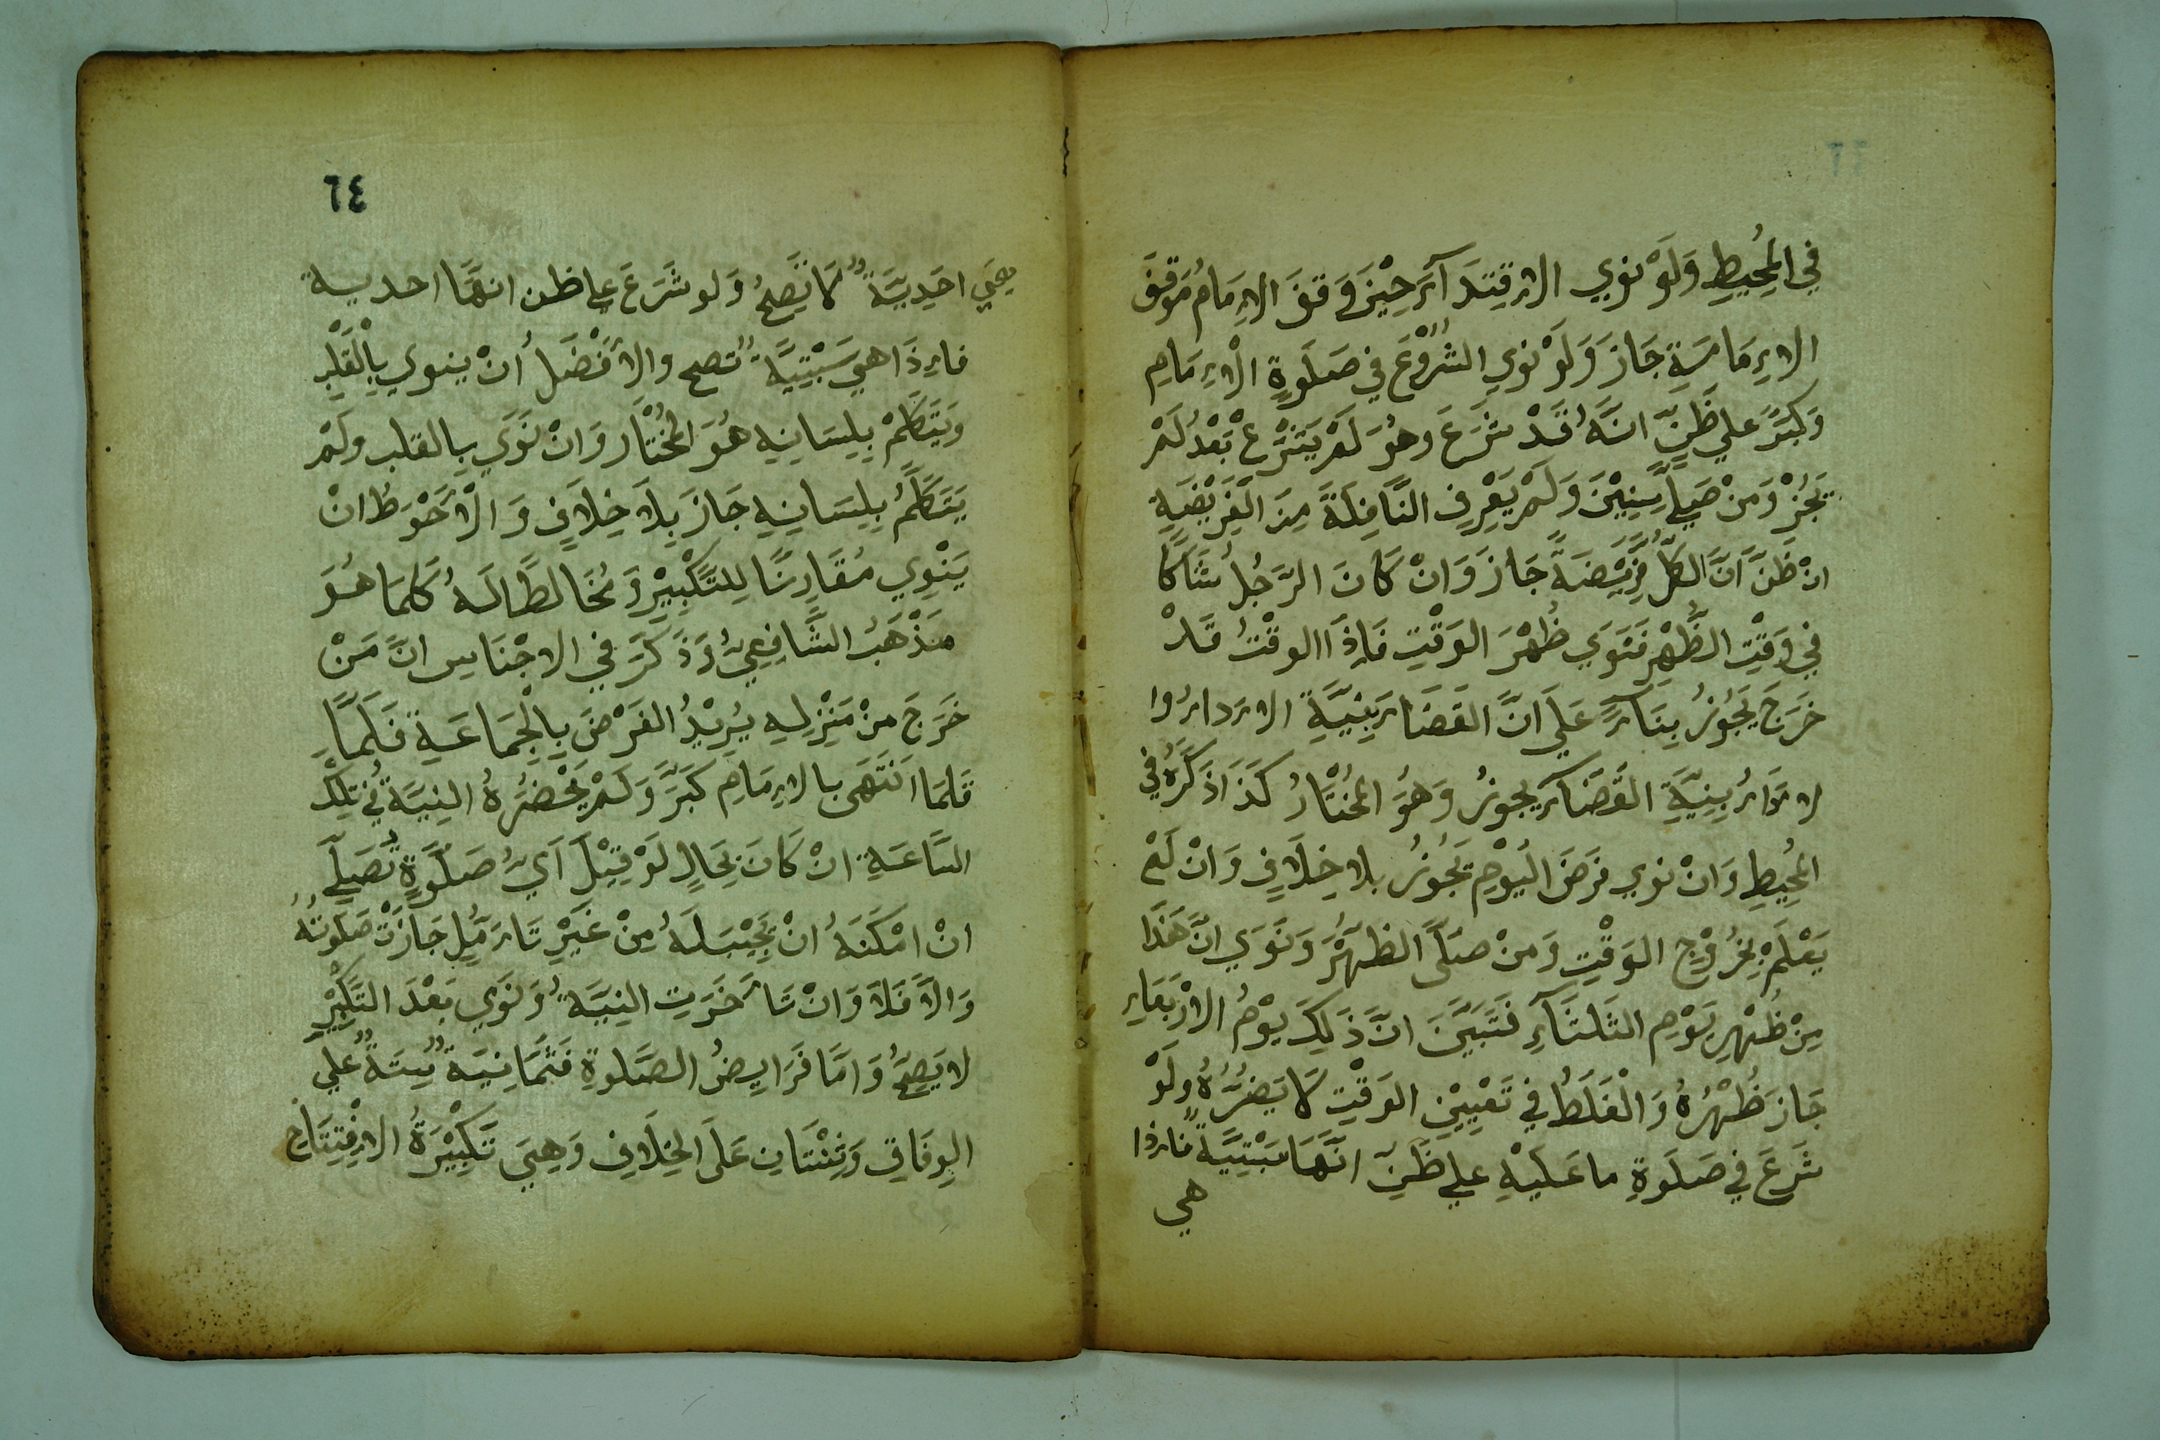 في المُحِيطِ وَلَوْ نوي الاِقتِدَآءَ حِيْنَ وَقفَ الاِمَامُ مَوقِفَ
الاِمَامَةِ جَازَ وَلَوْ نوي الشُرُوْعَ في صَلَوةِ الْاِمَامِ
وَكَبَّرَ علي ظَنِّ انَّهُ قَدْ شَرَعَ وهُوَ لَمْ يَشْرَعْ بَعْدُ لَمْ
يَجُزْ وَمَنْ صَلَّي سِنِيْنَ وَلَمْ يَعْرِفِ النَّافِلَةَ مِنَ الْفَرِيْضَةِ
انْ ظَنَّ اَنَّ الكُلَّ فَرِيْضَةً جَازَ وَانْ كَانَ الرَّجُلُ شَاكًا
في وَقْتِ الظُّهْرِ فَنَوَي ظُهْرَ الوَقْتِ فَاِذَا الوقْتُ قَدْ
خَرَجَ يَجُوْزُ بِنَاءً عَلَي انَّ القَضَاءَ بِنِيَّةِ الادَاءِ وا
لادَاءُ بِنِيَّةِ القَضَآءِ يجوزُ وَهُوَ المُخْتَارُ كَذَا ذَكَرَهُ في
المُحِيطِ وَانْ نوي فرَضَ اليُوْمِ يَجُوْزُ بلا خِلَافٍ وَانْ لَمْ
يَعْلَمْ بِخُرُوْجِ الوَقْتِ وَمنْ صَلَّى الظهْرَ وَنَوَي انَّ هَذَا
مِنْ ظُهْرِ يَوْمِ الثَلثَآءِ فَتَبَيَّنَ انَّ ذَلِكَ يوْمُ الارْبَعَاءِ
جَازَ ظُهْرُهُ وَالْغَلَطُ في تَعْيِيْنِ الوَقْتِ لَا يَضُرُّهُ ولَوْ
شَرَعَ في صَلَوةِ ما عَلَيْهِ علي ظَنِّ انَّهَا سَبْتِيَّةٌ فاِذا
هي
٦٤
هِيَي احَدِيَّةٌ لَا تَصِحُّ وَلو شَرَعَ علي ظن انهَّا احدية
فاِذَا هي سَبْتِيَّةٌ تصح والاَفْضَلُ أنْ ينوي بِالْقَلْبِ
وَيَتَكَلَّمْ بِلِسَانِهِ هُوَ المُخْتَار وَانْ نَوَي بِالقلب ولَمْ
يَتَكَلَّمُ بِلِسَانِهِ جَازَ بِلَا خِلَافٍ وَالْاَحْوَطُ انْ
يَنْوِي مُقَارِنًا لِلتَّكْبِيْرِ وَ مُخَالطًا لَهُ كَمَا هُوَ
مَذْهَبُ الشَّافِعِيِّ وَذَكَرَ في الاجْنَاسِ انَّ مَنْ
خَرَجَ منْ مَنْزِلِهِ يُرِيْدُ الفَرْضَ بِالْجَمَاعَةِ فَلَمَّا
فَلمَا انْتَهَى بالاِمَامِ كَبَّرَ وَلَمْ يَحْضُرْهُ النِيَةُ في تِلْكَ
السَّاعَةِ انْ كَانَ بِحَالٍ لَوْ قِيْلَ اَيُّ صَلَوَةٍ تُصَلِّي
انْ امْكَنَهُ انْ يُجِيْبَ لَهُ مِنْ غَيْرِ تَاَمُّلٍ جَازَتْ صَلَوتُهُ
وَالاَّ فَلَا وَانْ تَأَخَرَتِ النِيَّةُ وَنَوَي بَعْدَ التَّكْبِيْرِ
لا يَصِحُّ وَامَّا فَرَايِضُ الصَّلوةِ فَثَمَانِيَةٌ سِتَةٌ عَلَي
الوِفَاقِ وَثِنْتَانِ عَلَى الخِلَافِ وَهِيَ تَكْبِيْرَةُ الاِفْتِتَاحِ